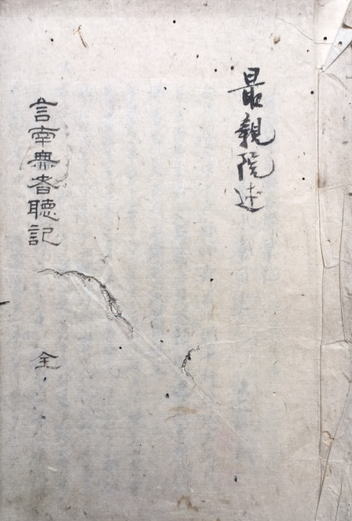 最親院述
言南無者聽記
全